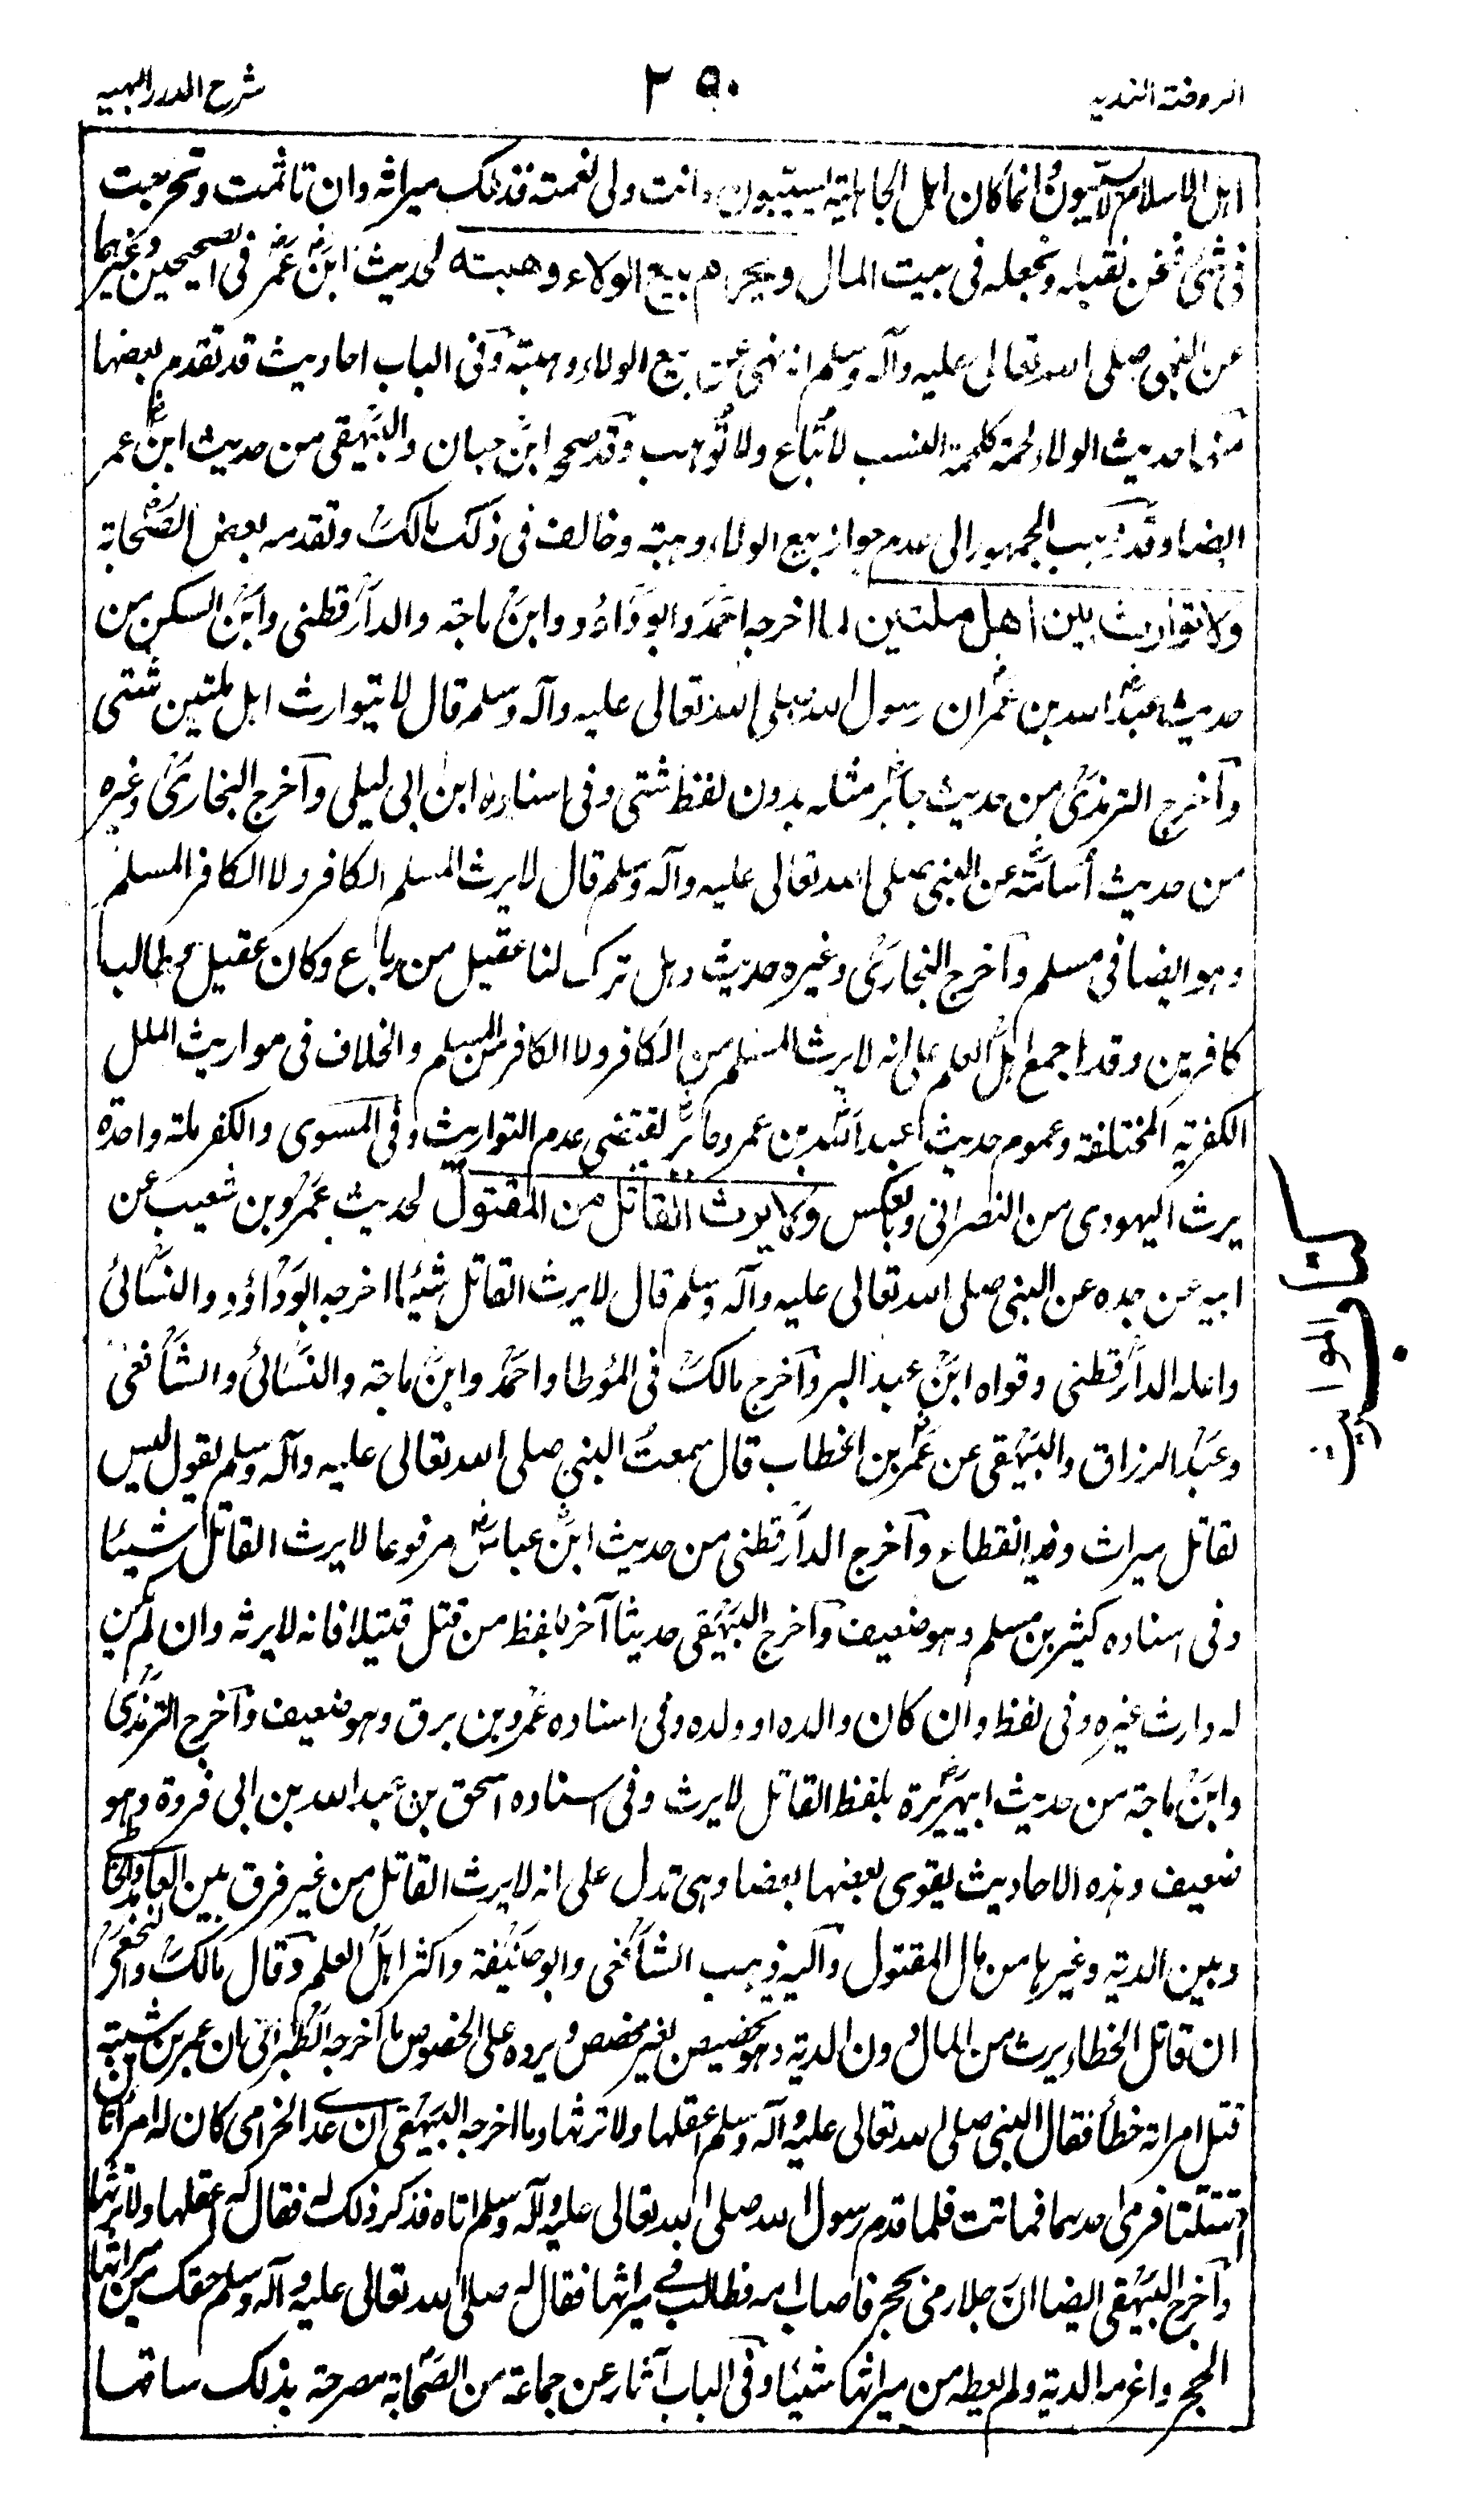 الروضة الندية
٢٩٠
شرح الدرر البهية
اہل الاسلام لا یسیبون انما کان اہل الجاہلیة یسیبون وانت ولی نعمتہ فذلک میراثہ وان تاثمت وتحرجت
فی شیٔ فنحن نقبلہ ونجعلہ فی بیت المال ویحرم بیع الولاء وھبتہ لحدیث ابن عمر فی الصحیحین وغیرہما
عن النبی صلی اللہ تعالی علیہ وآلہ وسلم انہ نہی عن بیع الولاء وہبتہ وفی الباب احادیث قد تقدم بعضہا
منہا حدیث الولاء لحمة کلحمة النسب لا تباع ولا توہب وقد صححہ ابن حبان والبیہقی من حدیث ابن عمر
ایضا وقد ذہب الجمہور الی عدم جواز بیع الولاء وہبتہ وخالف فی ذلک مالک وتقدمہ بعض الصحابة
ولا توارث بین اھل ملتین لما اخرجہ احمد وابو داؤد وابن ماجة والدارقطنی وابن السکن من
حدیث عبد اللہ بن عمر ان رسول اللہ صلی اللہ تعالی علیہ وآلہ وسلم قال لا یتوارث اہل ملتین شتی
وآخرج الترمذی من حدیث جابر مثلہ بدون لفظ شتی وفی اسنادہ ابن ابی لیلی وآخرج البخاری وغیرہ
من حدیث أسامة عن النبی صلی اللہ تعالی علیہ وآلہ وسلم قال لا یرث المسلم الکافر ولا الکافر المسلم
وہو ایضا فی مسلم وآخرج البخاری وغیرہ حدیث وہل ترک لنا عقیل من رباع وکان عقیل وطالب
کافرین وقد اجمع اہل العلم علی انہ لا یرث المسلم من الکافر ولا الکافر من المسلم والخلاف فی مواریث الملل
الکفریة المختلفة وعموم حدیث عبد اللہ بن عمر وجابر یقتضی عدم التوارث وفی المسوی والکفر ملة واحدة
یرث الیہودی من النصرانی وبالعکس ولا یرث القاتل من المقتول لحدیث عمرو بن شعیب عن
ابیہ عن جدہ عن النبی صلی اللہ تعالی علیہ وآلہ وسلم قال لا یرث القاتل شیئا اخرجہ ابو داؤد والنسائی
واعلہ الدارقطنی وقواہ ابن عبد البر وآخرج مالک فی المؤطا واحمد وابن ماجة والنسائی والشافعی
وعبد الرزاق والبیہقی عن عمر بن الخطاب قال سمعت النبی صلی اللہ تعالی علیہ وآلہ وسلم یقول لیس
لقاتل میراث وفیہ انقطاع وآخرج الدارقطنی من حدیث ابن عباس مرفوعا لا یرث القاتل شیئا
وفی اسنادہ کثیر بن مسلم وہو ضعیف وآخرج البیہقی حدیثا آخر بلفظ من قتل قتیلا فانہ لا یرثہ وان لم یکن
لہ وارث غیرہ وفی لفظ وان کان والدہ او ولدہ وفی اسنادہ عمرو بن برق وہو ضعیف وآخرج الترمذی
وابن ماجة من حدیث ابی ہریرة بلفظ القاتل لا یرث وفی اسنادہ اسحق بن عبد اللہ بن ابی فروة وہو
ضعیف وہذہ الاحادیث یقوی بعضہا بعضا وہی تدل علی انہ لا یرث القاتل من غیر فرق بین العامد والخاطی
وبین الدیة وغیرہا من مال المقتول وآلیہ ذہب الشافعی وابو حنیفة واکثر اہل العلم وقال مالک والنخعی
ان قاتل الخطاء یرث من المال دون الدیة وہو تخصیص بغیر مخصص ویردہ علی الخصوص ما اخرجہ الطبرانی ان عمر بن شیبة
قتل امراتہ خطأ فقال النبی صلی اللہ تعالی علیہ وآلہ وسلم اعقلہا ولا ترثہا وما اخرجہ البیہقی ان عدیا الجذامی کان لہ امرأتان
اقتتلتا فرمی احدہما فماتت فلما قدم رسول اللہ صلی اللہ تعالی علیہ وآلہ وسلم اتاہ فذکر ذلک لہ فقال لہ اعقلہا ولا ترثہا
وآخرج البیہقی ایضا ان رجلا رمی بحجر فاصاب امہ فطالب فی میراثہا فقال لہ صلی اللہ تعالی علیہ وآلہ وسلم حقک من میراثہا
الحجر واغرمہ الدیة ولم یعطہ من میراثہا شیئا وفی الباب آثار عن جماعة من الصحابة مصرحة بذلک ساقہا